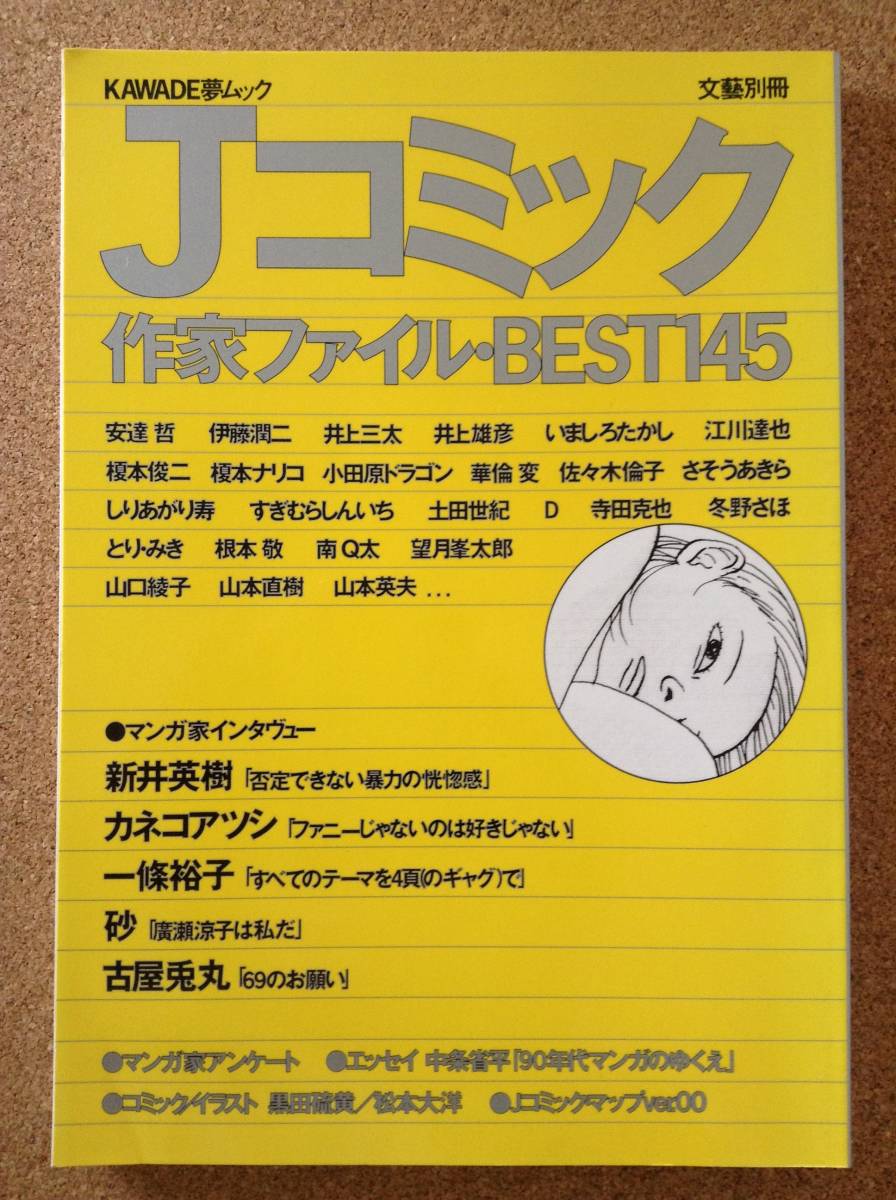 KAWADE夢ムック 文藝別冊
Jコミック
作家ファイル・BEST145
安達 哲 伊藤潤二 井上三太 井上雄彦 いましろたかし 江川達也
榎本俊二 榎本ナリコ 小田原ドラゴン 華倫 変 佐々木倫子 さそうあきら
しりあがり寿 すぎむらしんいち 土田世紀 D 寺田克也 冬野さほ
とり・みき 根本 敬 南Q太 望月峯太郎
山口綾子 山本直樹 山本英夫 ...
●マンガ家インタヴュー
新井英樹「否定できない暴力の恍惚感」
カネコアツシ「ファニーじゃないのは好きじゃない」
一條裕子「すべてのテーマを4頁(のギャグ)で」
砂「廣瀬涼子は私だ」
古屋兎丸「69のお願い」
●マンガ家アンケート ●エッセイ 中条省平「90年代マンガのゆくえ」
●コミック・イラスト 黒田硫黄／松本大洋 ●Jコミックマップver.00